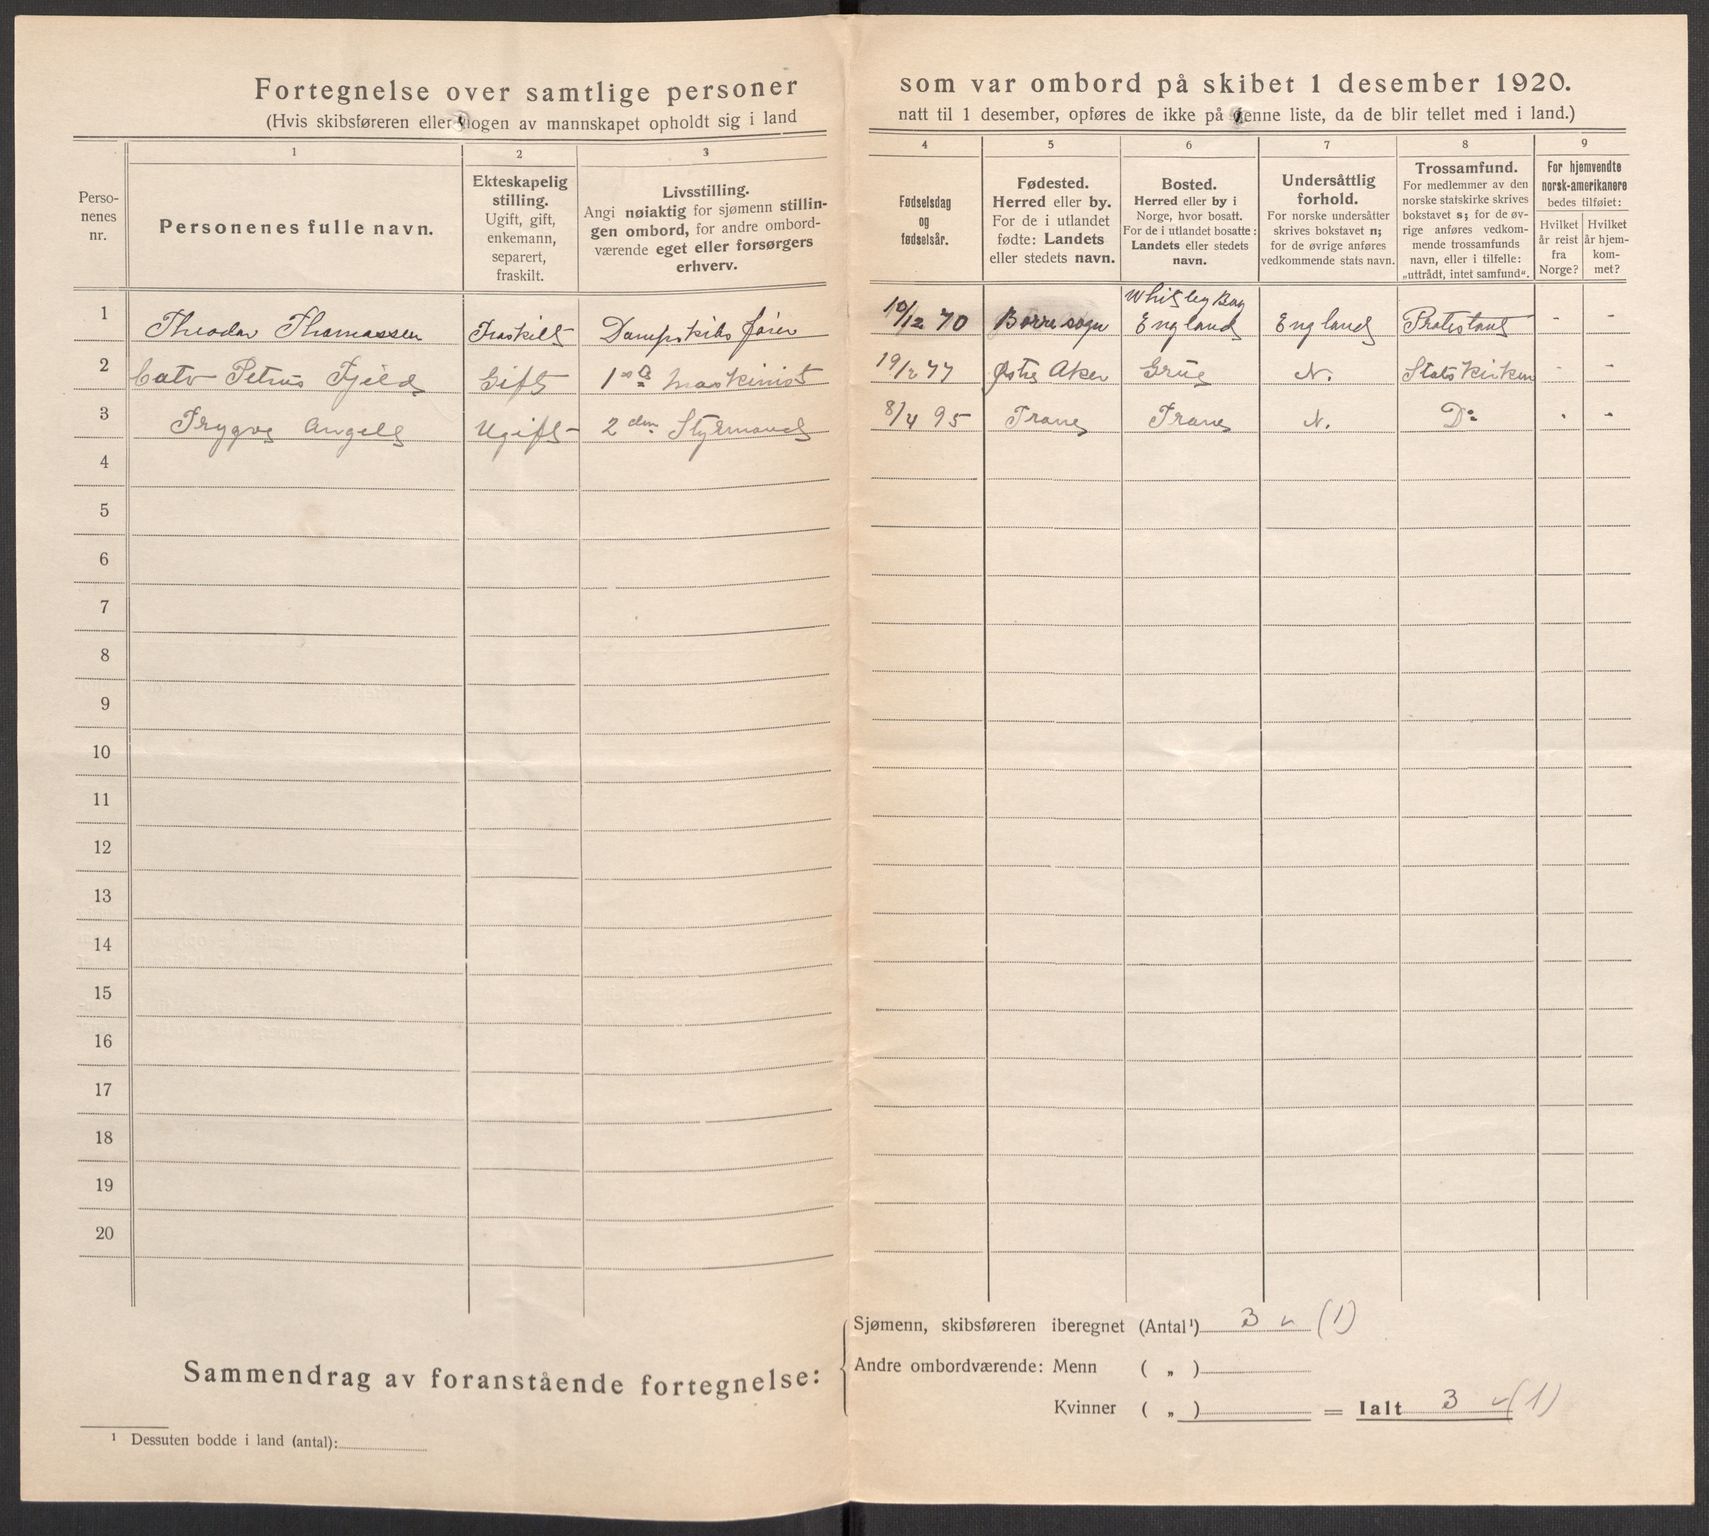 Fortegnelse over samtlige personer som var ombord på skibet 1 desember 1920.
(Hvis skibsføreren eller nogen av mannskapet opholdt sig i land natt til 1 desember, opføres de ikke på denne liste, da de blir tellet med i land.)
Personenes nr.
1
Personenes fulle navn.
2
Ekteskapelig stilling.
Ugift, gift, enkemann, separert, fraskilt.
3
Livsstilling.
Angi nøiaktig for sjømenn stillingen ombord, for andre ombordværende eget eller forsørgers erhverv.
4
Fødselsdag og fødselsår.
5
Fødested.
Herred eller by.
For de i utlandet fødte: Landets eller stedets navn.
6
Bosted.
Herred eller by i Norge, hvor bosatt.
For de i utlandet bosatte: Landets eller stedets navn.
7
Undersåttlig forhold.
For norske undersåtter skrives bokstavet n; for de øvrige anføres vedkommende stats navn.
8
Trossamfund.
For medlemmer av den norske statskirke skrives bokstavet s; for de øvrige anføres vedkommende trossamfunds navn, eller i tilfelle: „uttrådt, intet samfund“.
9
For hjemvendte norsk-amerikanere bedes tilføiet:
Hvilket år reist fra Norge?
Hvilket år hjemkommet?
1 Theodor Thomassen Fraskilt Dampskibs fører 10/12 70 Borre sogn Whitley Bay England England Protestant - -
2 Petrus Fjeld Gift 1ste Maskinist 19/2 77 Østre Aker Grue N. Stats Kirken - -
3 Trygve Angell Ugift 2den Styrmand 8/4 95 Trane Trane N. Do - -
4
5
6
7
8
9
10
11
12
13
14
15
16
17
18
19
20
Sammendrag av foranstående fortegnelse:
Sjømenn, skibsføreren iberegnet (Antal¹) 3 (1)
Andre ombordværende: Menn ( „ )
Kvinner ( „ ) = Ialt 3 (1)
¹ Dessuten bodde i land (antal):